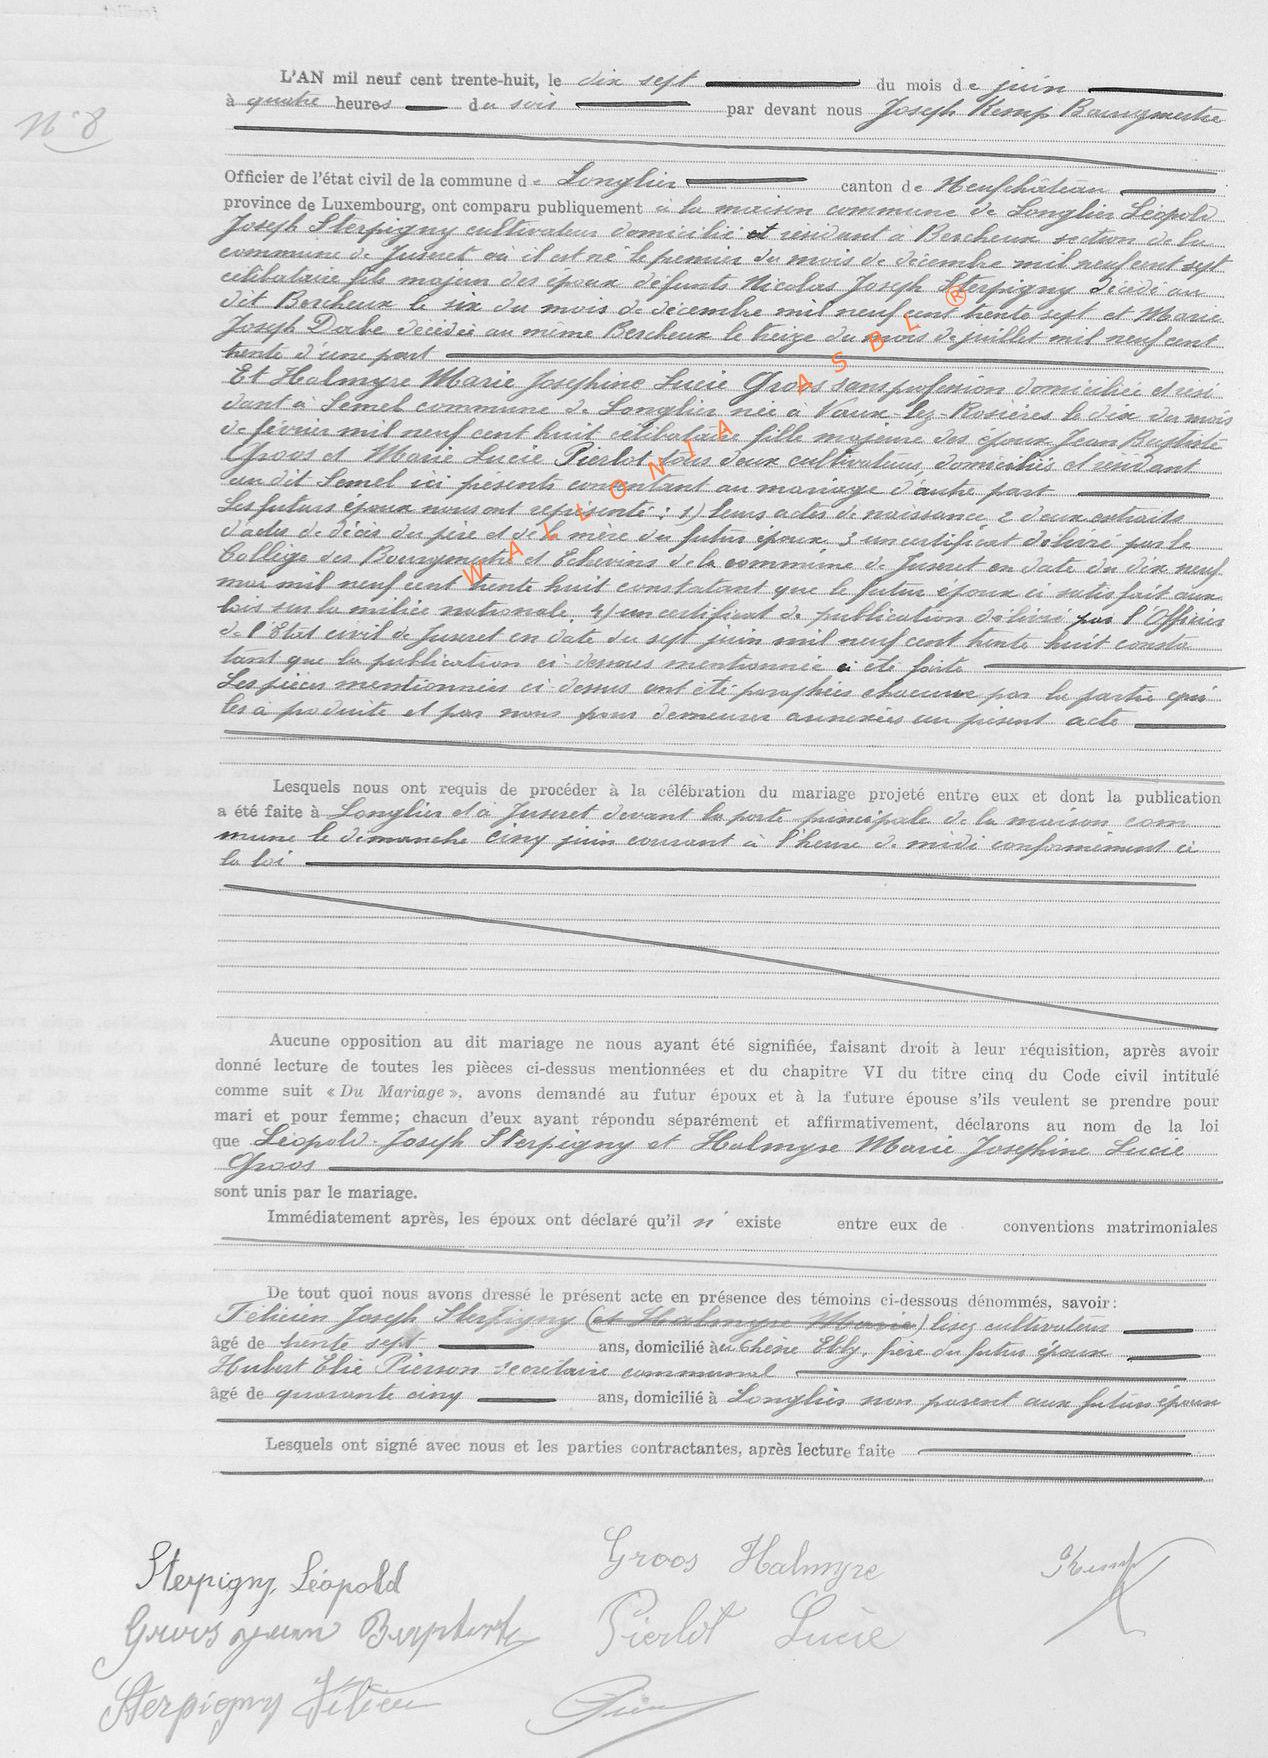 N° 8
L'AN mil neuf cent trente-huit, le dix sept du mois de juin
à quatre heures du soir par devant nous Joseph Kemp Bourgmestre
Officier de l'état civil de la commune de Longlier canton de Neufchâteau
province de Luxembourg, ont comparu publiquement à la maison commune de Longlier Léopold
Joseph Sterpigny cultivateur domicilié et résidant à Bercheux section de la
commune de Juseret où il est né le premier du mois de décembre mil neuf cent sept
célibataire fils majeur des époux défunts Nicolas Joseph Sterpigny décédé au
dit Bercheux le six du mois de décembre mil neuf cent trente sept et Marie
Joseph Dabe décédée au même Bercheux le treize du mois de juillet mil neuf cent
trente d'une part
Et Halmyre Marie Joséphine Lucie Groos sans profession domiciliée et rési
dant à Semel commune de Longlier née à Vaux-lez-Rosières le dix du mois
de février mil neuf cent huit célibataire fille majeure des époux Jean Baptiste
Groos et Marie Lucie Pierlot tous deux cultivateurs domiciliés et résidant
au dit Semel ici présents consentant au mariage d'autre part
Les futurs époux nous ont représenté : 1) leurs actes de naissance 2 deux extraits
d'actes de décès du père et de la mère du futur époux 3 un certificat délivré par le
Collège des Bourgmestre et Echevins de la commune de Juseret en date du dix neuf
mai mil neuf cent trente huit constatant que le futur époux a satisfait aux
lois sur la milice nationale. 4) un certificat de publication délivré par l'Officier
de l'Etat civil de Juseret en date du sept juin mil neuf cent trente huit consta
tant que la publication ci-dessous mentionnée a été faite
Les pièces mentionnées ci-dessus ont été paraphées chacune par la partie qui
les a produite et par nous pour demeurer annexées au présent acte
Lesquels nous ont requis de procéder à la célébration du mariage projeté entre eux et dont la publication
a été faite à Longlier et à Juseret devant la porte principale de la maison com
mune le dimanche cinq juin courant à l'heure de midi conformément à
la loi
Aucune opposition au dit mariage ne nous ayant été signifiée, faisant droit à leur réquisition, après avoir
donné lecture de toutes les pièces ci-dessus mentionnées et du chapitre VI du titre cinq du Code civil intitulé
comme suit « Du Mariage », avons demandé au futur époux et à la future épouse s'ils veulent se prendre pour
mari et pour femme; chacun d'eux ayant répondu séparément et affirmativement, déclarons au nom de la loi
que Léopold Joseph Sterpigny et Halmyre Marie Joséphine Lucie
Groos
sont unis par le mariage.
Immédiatement après, les époux ont déclaré qu'il n'existe entre eux de conventions matrimoniales
De tout quoi nous avons dressé le présent acte en présence des témoins ci-dessous dénommés, savoir:
Félicien Joseph Sterpigny (et Halmyre Marie) lisez cultivateur
âgé de trente sept ans, domicilié à Ebly, frère du futur époux
Hubert Elie Pierson secrétaire communal
âgé de quarante cinq ans, domicilié à Longlier non parent aux futurs époux
Lesquels ont signé avec nous et les parties contractantes, après lecture faite
Sterpigny Léopold
Groos Halmyre
Kemp
Groos Jean Baptiste
Pierlot Lucie
Sterpigny Félicien
WALLONIA ASBL ®